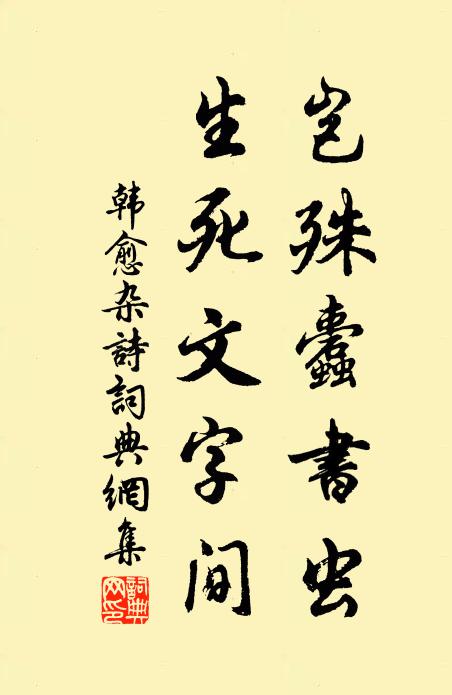 岂殊蠹書虫
生死文字间
韩愈杂詩詞典網集
詞典
网印